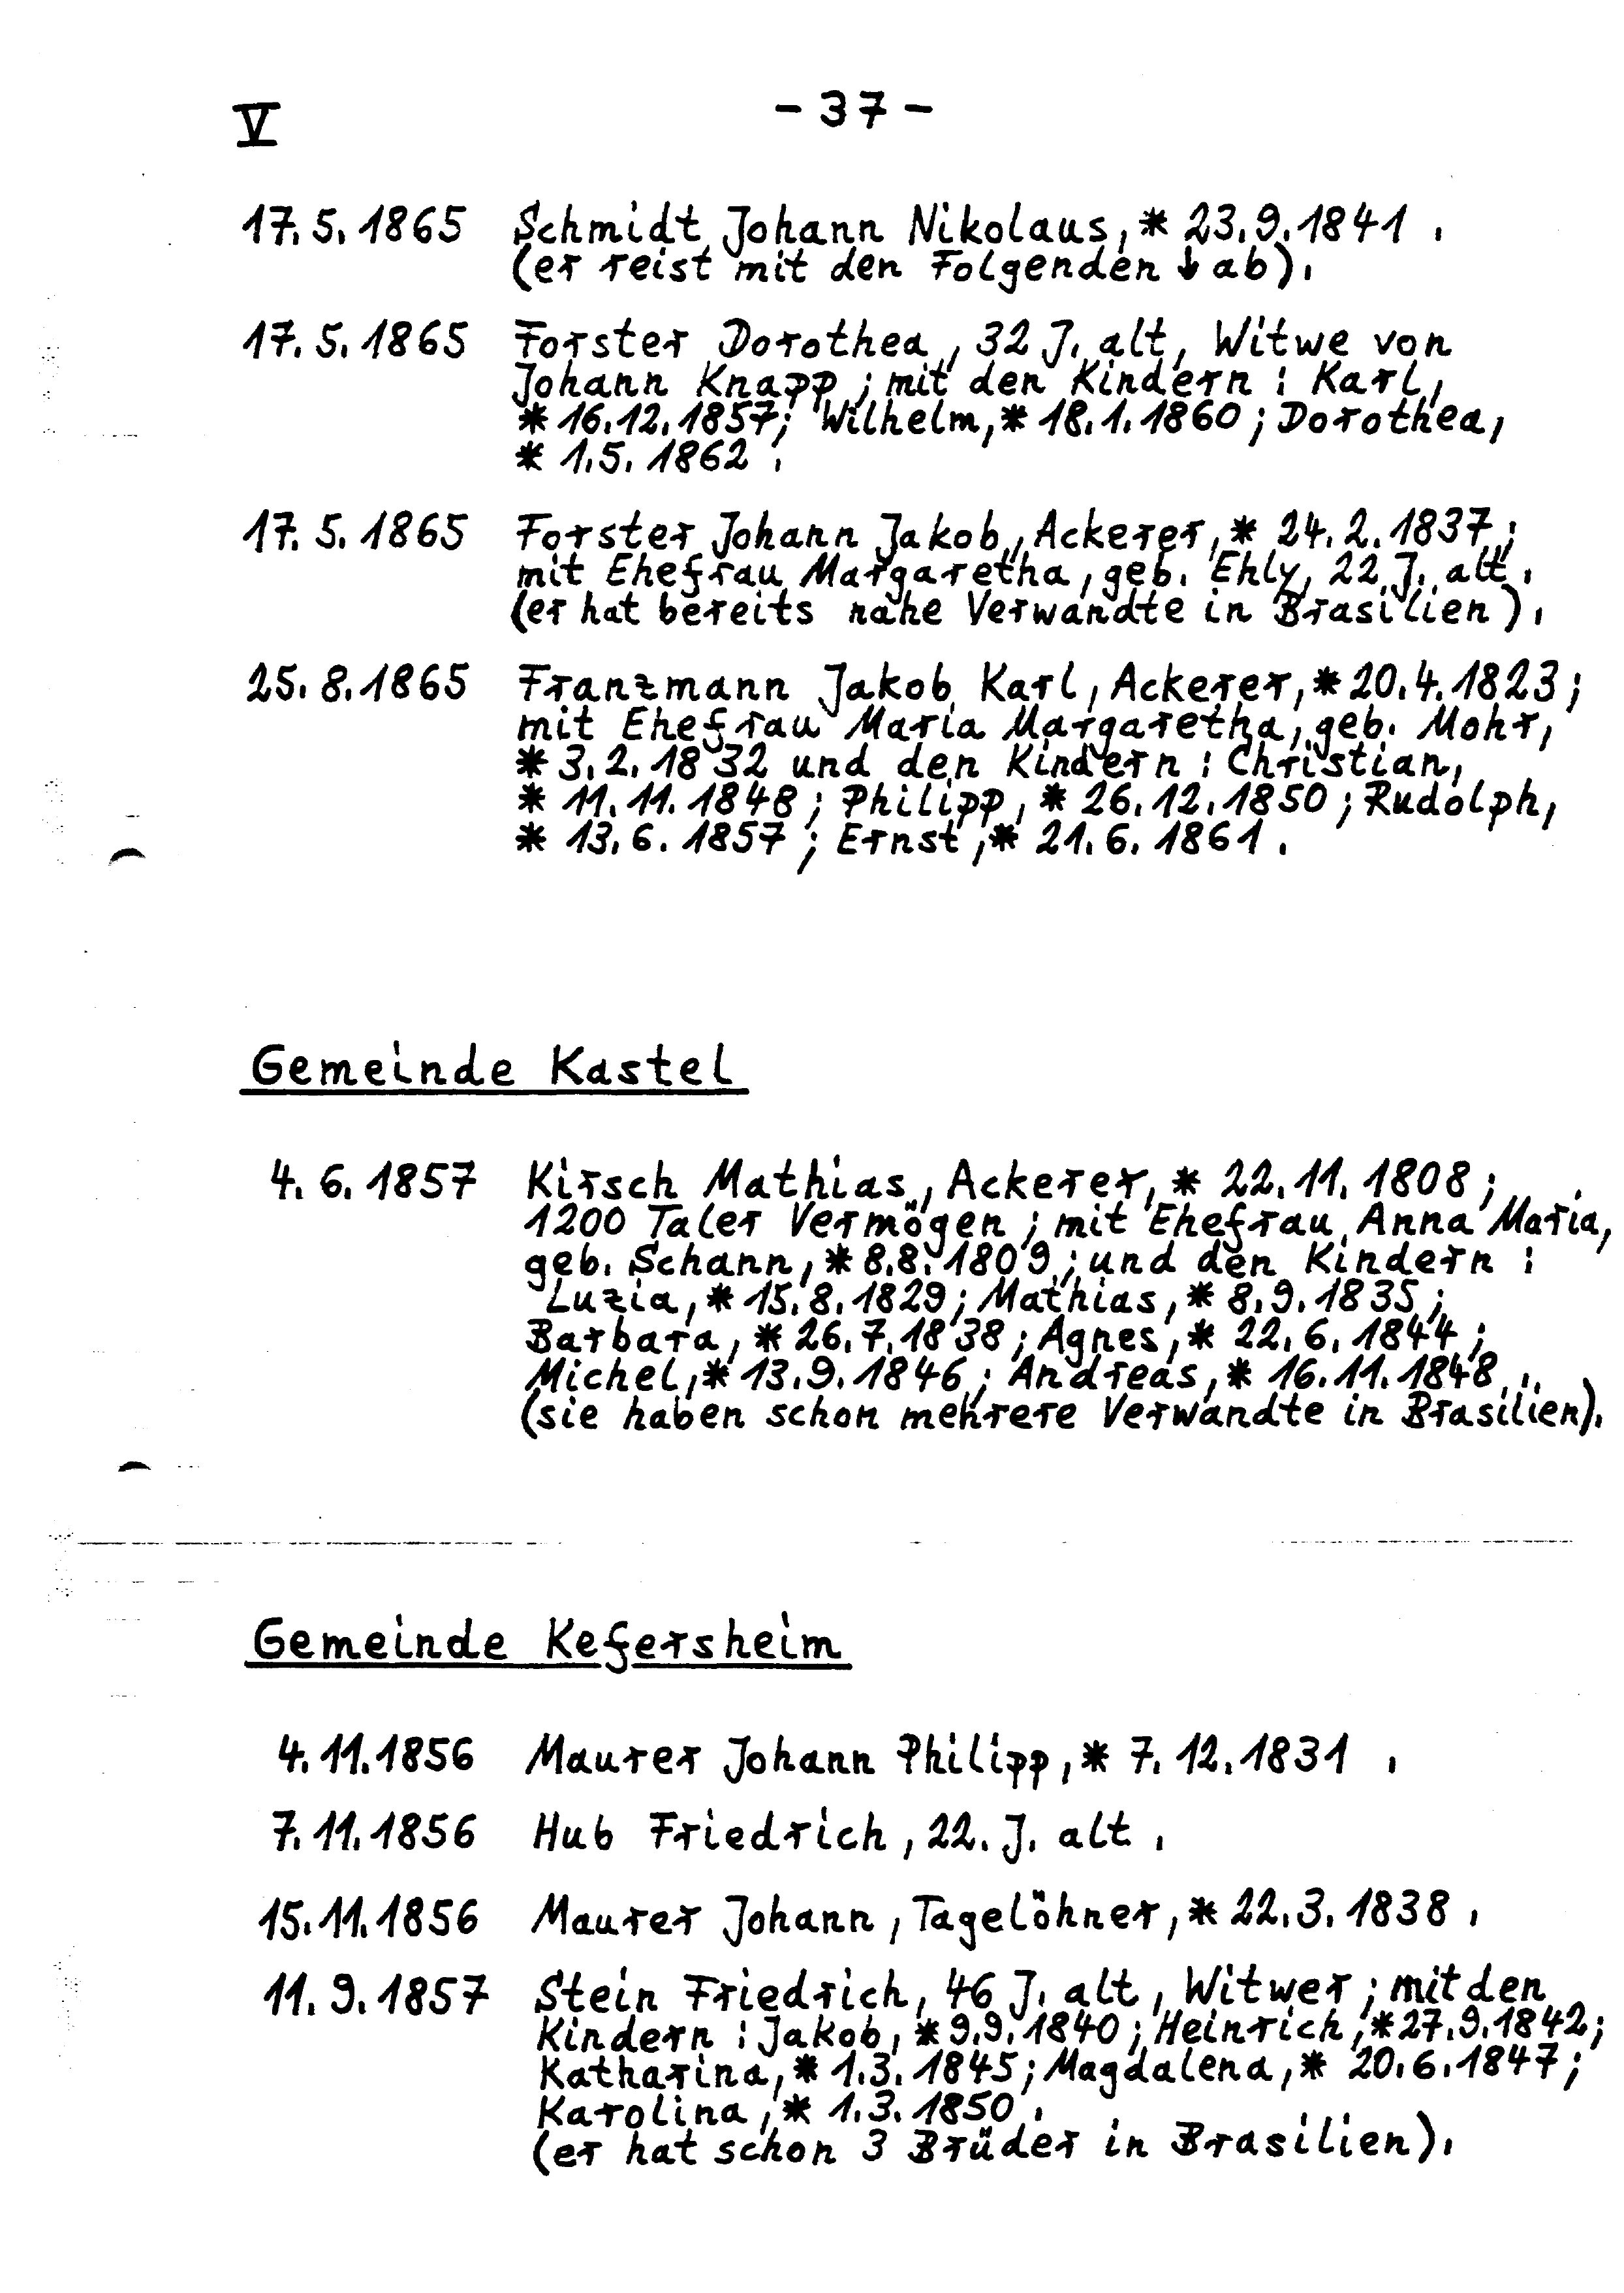 V
- 37 -
17. 5. 1865 Schmidt Johann Nikolaus, * 23. 9. 1841 .
(er reist mit den Folgenden ↓ ab).
17. 5. 1865 Forster Dorothea, 32 J. alt, Witwe von
Johann Knapp ; mit den Kindern : Karl,
* 16.12.1857; Wilhelm, * 18.1.1860 ; Dorothea,
* 1.5. 1862 .
17. 5. 1865 Forster Johann Jakob, Ackerer, * 24. 2. 1837 ;
mit Ehefrau Margaretha, geb. Ehly, 22 J. alt.
(er hat bereits nahe Verwandte in Brasilien ).
25. 8. 1865 Franzmann Jakob Karl, Ackerer, * 20.4.1823 ;
mit Ehefrau Maria Margaretha, geb. Mohr,
* 3. 2. 1832 und den Kindern : Christian,
* 11. 11. 1848 ; Philipp, * 26.12.1850 ; Rudolph,
* 13. 6. 1857 ; Ernst, * 21. 6. 1861 .
Gemeinde Kastel
4. 6. 1857 Kirsch Mathias, Ackerer, * 22. 11. 1808 ;
1200 Taler Vermögen ; mit Ehefrau Anna Maria,
geb. Schann, * 8.8. 1809 ; und den Kindern :
Luzia, * 15. 8. 1829 ; Mathias, * 8. 9. 1835 ;
Barbara, * 26. 7. 1838 ; Agnes, * 22. 6. 1844 ;
Michel, * 13. 9. 1846 ; Andreas, * 16. 11. 1848 .
(sie haben schon mehrere Verwandte in Brasilien).
Gemeinde Kefersheim
4. 11. 1856 Maurer Johann Philipp, * 7. 12. 1831 .
7. 11. 1856 Hub Friedrich, 22. J. alt .
15. 11. 1856 Maurer Johann, Tagelöhner, * 22. 3. 1838 .
11. 9. 1857 Stein Friedrich, 46 J. alt, Witwer ; mit den
Kindern : Jakob, * 9.9. 1840 ; Heinrich, * 27.9.1842 ;
Katharina, * 1.3. 1845 ; Magdalena, * 20. 6. 1847 ;
Karolina, * 1. 3. 1850 .
(er hat schon 3 Brüder in Brasilien ).